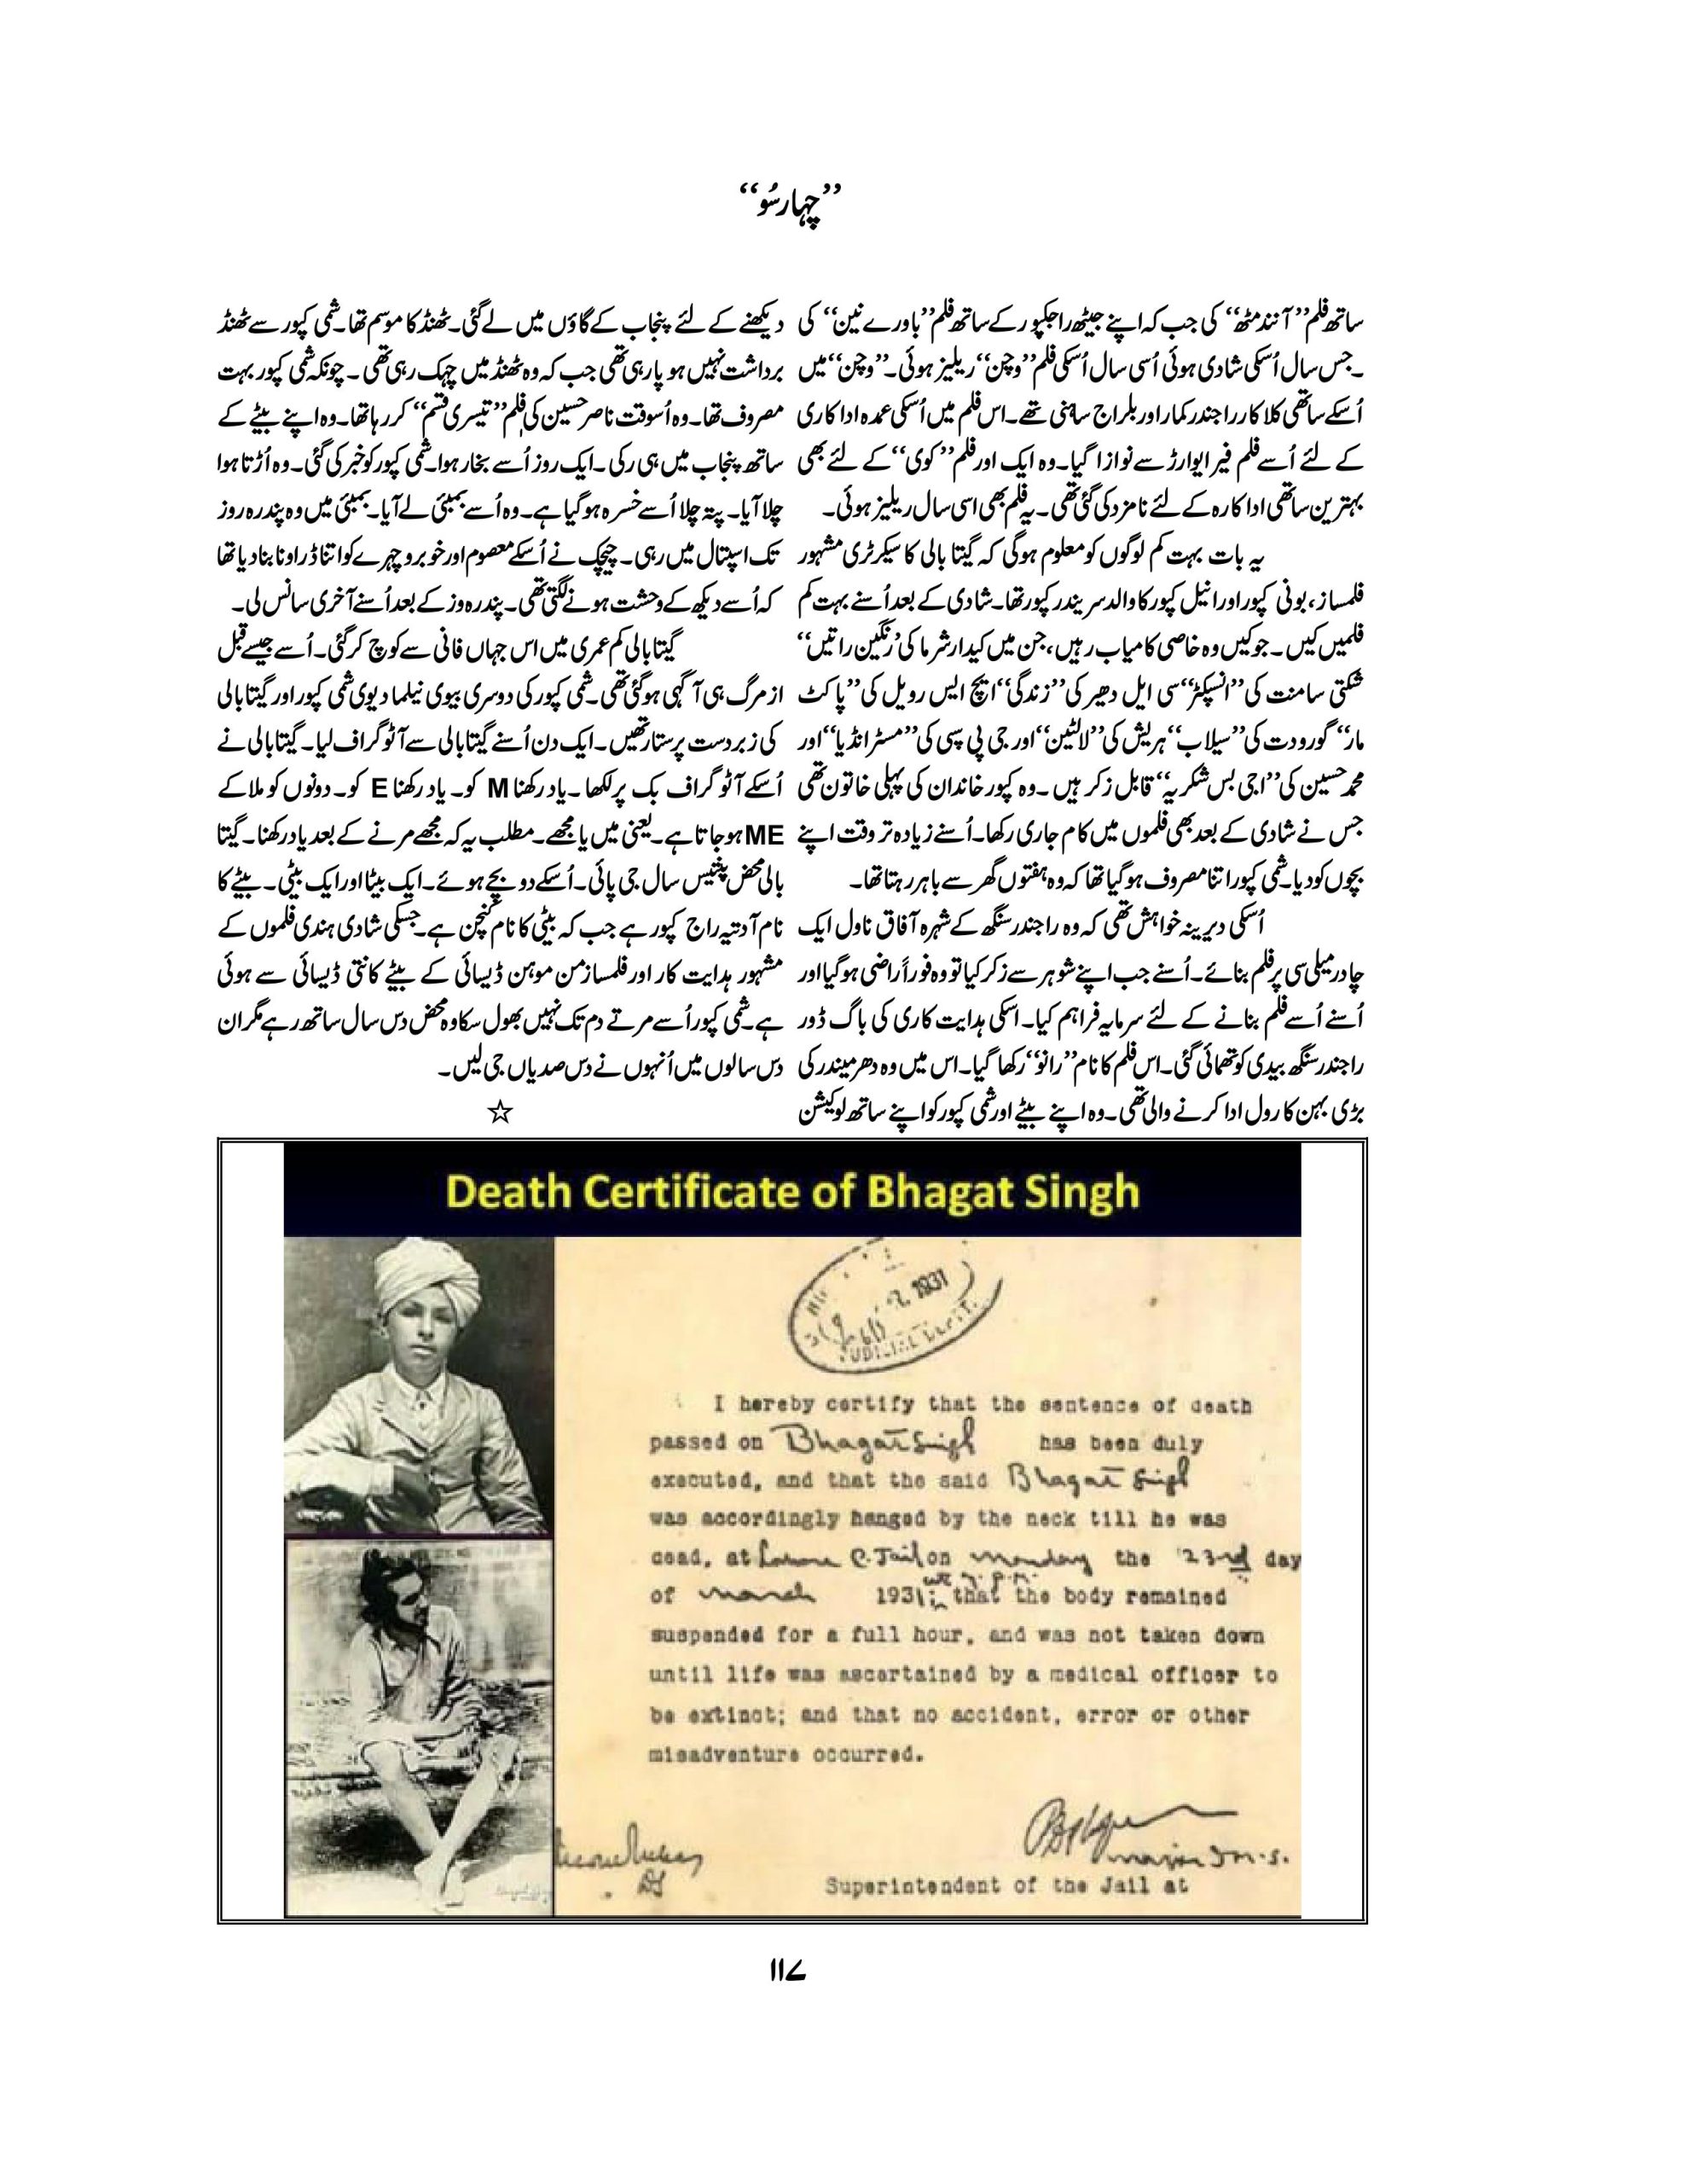 ”چہارسُو“
ساتھ فلم ”آنند مٹھ“ کی جب کہ اپنے جیٹھ راجکپور کے ساتھ فلم ”باورے نین“ کی
۔جس سال اُسکی شادی ہوئی اُسی سال اُسکی فلم ”وچن“ ریلیز ہوئی۔ ”وچن“ میں
اُسکے ساتھی کلاکار راجندر کمار اور بلراج ساہنی تھے۔اس فلم میں اُسکی عمدہ اداکاری
کے لئے اُسے فلم فیر ایوارڈ سے نوازا گیا۔وہ ایک اور فلم ”کوی“ کے لئے بھی
بہترین ساتھی اداکارہ کے لئے نامزد کی گئی تھی۔یہ فلم بھی اسی سال ریلیز ہوئی۔
یہ بات بہت کم لوگوں کو معلوم ہوگی کہ گیتا بالی کا سیکرٹری مشہور
فلمساز، بونی کپور اور انیل کپور کا والد سریندر کپور تھا۔شادی کے بعد اُسنے بہت کم
فلمیں کیں۔ جو کیں وہ خاصی کامیاب رہیں، جن میں کیدار شرما کی ’رنگین راتیں“
شکتی سامنت کی ”انسپکٹر“ سی ایل دھیر کی ”زندگی“ ایچ ایس رویل کی ”پاکٹ
مار“ گورودت کی ”سیلاب“ ہریش کی ”لالٹین“ اور جی پی سپی کی ”مسٹر انڈیا“ اور
محمد حسین کی ”اجی بس شکریہ“ قابل زکر ہیں ۔وہ کپور خاندان کی پہلی خاتون تھی
جس نے شادی کے بعد بھی فلموں میں کام جاری رکھا۔اُسنے زیادہ تر وقت اپنے
بچوں کو دیا۔شمی کپور اتنا مصروف ہوگیا تھا کہ وہ ہفتوں گھر سے باہر رہتا تھا۔
اُسکی دیرینہ خواہش تھی کہ وہ راجندر سنگھ کے شہرہ آفاق ناول ایک
چادر میلی سی پر فلم بنائے۔اُسنے جب اپنے شوہر سے زکر کیا تو وہ فوراً راضی ہوگیا اور
اُسنے اُسے فلم بنانے کے لئے سرمایہ فراہم کیا۔اسکی ہدایت کاری کی باگ ڈور
راجندر سنگھ بیدی کو تھمائی گئی۔اس فلم کا نام ”رانو“ رکھا گیا۔اس میں وہ دھرمیندر کی
بڑی بہن کا رول ادا کرنے والی تھی۔وہ اپنے بیٹے اور شمی کپور کو اپنے ساتھ لوکیشن
دیکھنے کے لئے پنجاب کے گاؤں میں لے گئی۔ٹھنڈ کا موسم تھا۔شمی کپور سے ٹھنڈ
برداشت نہیں ہو پا رہی تھی جب کہ وہ ٹھنڈ میں چہک رہی تھی۔ چونکہ شمی کپور بہت
مصروف تھا۔وہ اُسوقت ناصر حسین کی فلم ”تیسری قسم“ کر رہا تھا۔وہ اپنے بیٹے کے
ساتھ پنجاب میں ہی رکی۔ایک روز اُسے بخار ہوا۔شمی کپور کو خبر کی گئی۔وہ اُڑتا ہوا
چلا آیا۔ پتہ چلا اُسے خسرہ ہوگیا ہے۔وہ اُسے بمبئی لے آیا۔بمبئی میں وہ پندرہ روز
تک اسپتال میں رہی۔چیچک نے اُسکے معصوم اور خوبرو چہرے کو اتنا ڈراونا بنا دیا تھا
کہ اُسے دیکھ کے وحشت ہونے لگتی تھی۔پندرہ روز کے بعد اُسنے آخری سانس لی۔
گیتا بالی کم عمری میں اس جہاں فانی سے کوچ کر گئی۔اُسے جیسے قبل
از مرگ ہی آگہی ہوگئی تھی۔شمی کپور کی دوسری بیوی نیلما دیوی شمی کپور اور گیتا بالی
کی زبردست پرستار تھیں۔ایک دن اُسنے گیتا بالی سے آٹوگراف لیا۔گیتا بالی نے
اُسکے آٹوگراف بک پر لکھا۔یاد رکھنا M کو۔ یاد رکھنا E کو۔ دونوں کو ملا کے
ME ہو جاتا ہے۔یعنی میں یا مجھے۔مطلب یہ کہ مجھے مرنے کے بعد یاد رکھنا۔گیتا
بالی محض پنتیس سال جی پائی۔اُسکے دو بچے ہوئے۔ایک بیٹا اور ایک بیٹی۔ بیٹے کا
نام آدتیہ راج کپور ہے جب کہ بیٹی کا نام کنچن ہے۔جسکی شادی ہندی فلموں کے
مشہور ہدایت کار اور فلمساز من موہن ڈیسائی کے بیٹے کانتی ڈیسائی سے ہوئی
ہے۔شمی کپور اُسے مرتے دم تک نہیں بھول سکا وہ محض دس سال ساتھ رہے مگر ان
دس سالوں میں اُنہوں نے دس صدیاں جی لیں۔
☆
Death Certificate of Bhagat Singh
1931
I hereby certify that the sentence of death
passed on Bhagat Singh has been duly
executed, and that the said Bhagat Singh
was accordingly hanged by the neck till he was
dead, at Lahore C. Jail on Monday the 23rd day
of March 1931 at 7. P.M. that the body remained
suspended for a full hour, and was not taken down
until life was ascertained by a medical officer to
be extinct; and that no accident, error or other
misadventure occurred.
Major I.M.S.
Superintendent of the Jail at
۱۱۷